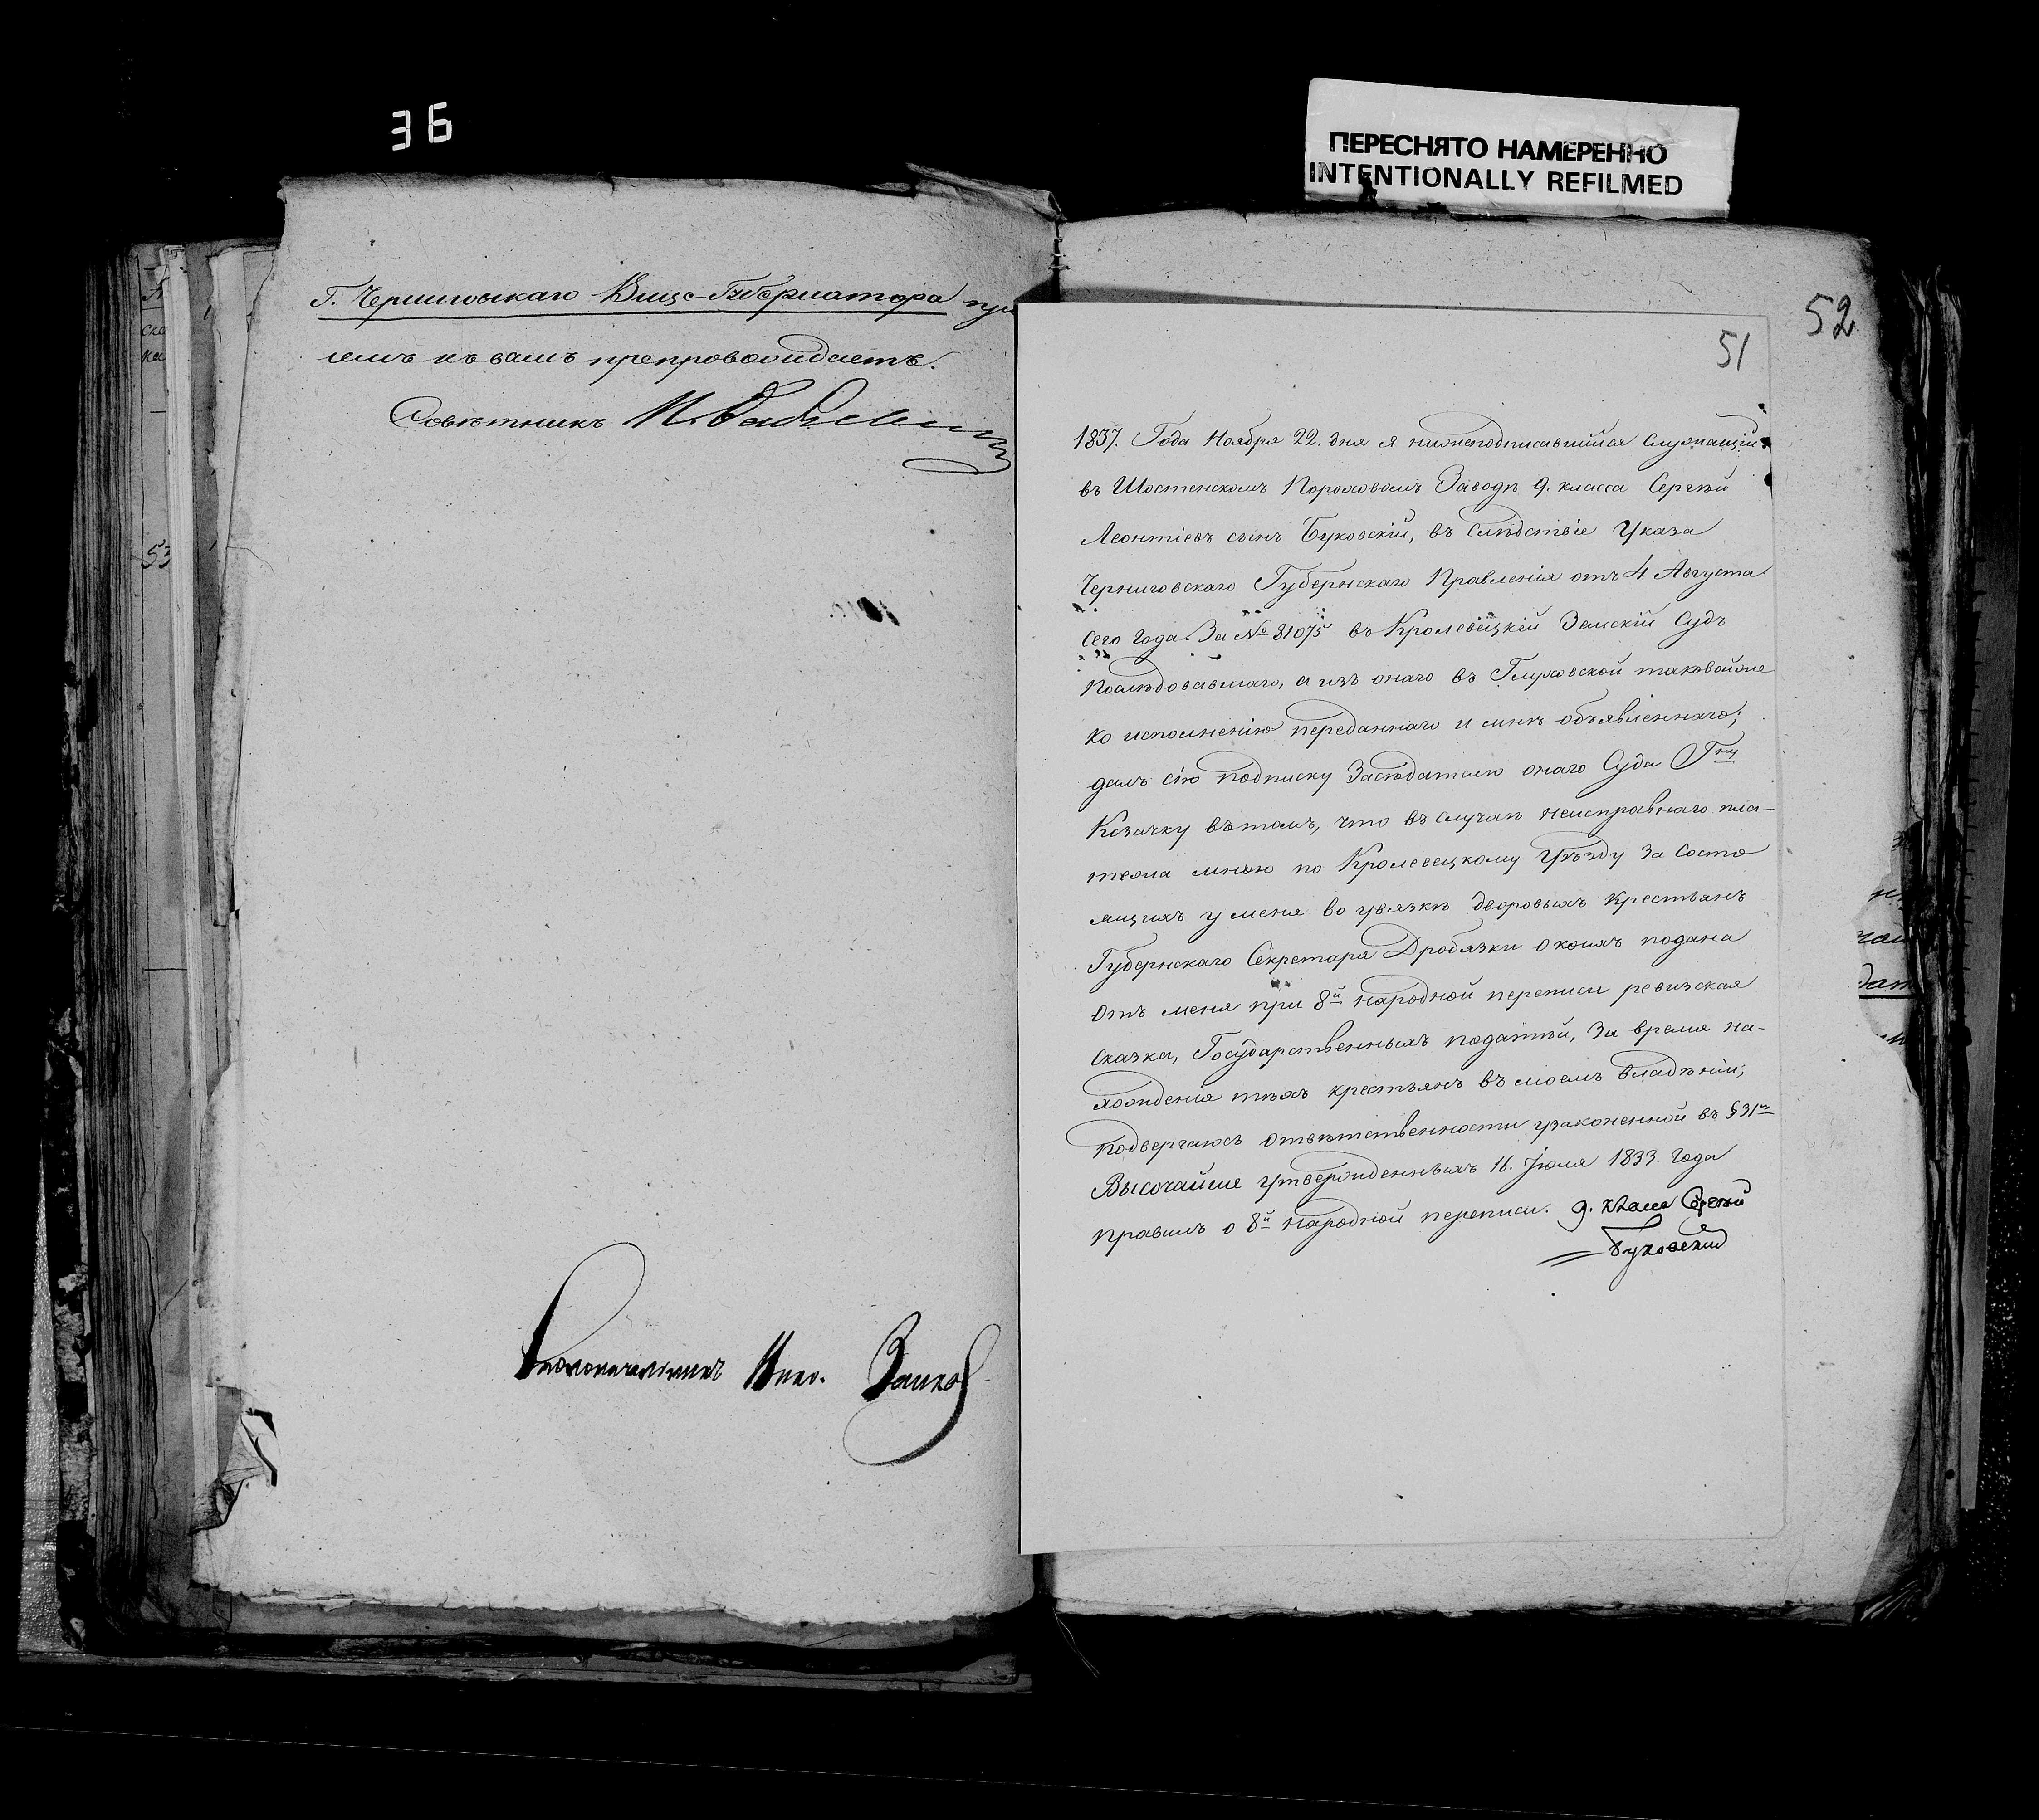 36
ПЕРЕСНЯТО НАМЕРЕННО
INTENTIONALLY REFILMED
Г. Черниговскаго Вице-Губернатора при
семъ къ вамъ препровождаетъ.
Совѣтникъ
Столоначальникъ
52
51
1837. Года Ноября 22. дня я нижеподписавшійся Служащій
въ Шостенскомъ Пороховомъ Заводѣ 9. класса Сергѣй
Леонтіевъ сынъ Буковскій, въ слѣдствіе Указа
Черниговскаго Губернскаго Правленія отъ 4. Августа
сего года за № 31075 въ Кролевецкій Земскій Судъ
послѣдовавшаго, а изъ онаго въ Глуховской таковойже
ко исполненію переданнаго и мнѣ объявленнаго;
далъ сію подписку Засѣдателю онаго Суда Гну
Козачку въ томъ, что въ случаѣ неисправнаго пла-
тежа мною по Кролевецкому уѣзду за состо
ящихъ у меня во увязкѣ дворовыхъ крестьянъ
Губернскаго Секретаря Дробязки о коихъ подана
отъ меня при 8й народной переписи ревизская
сказка, Государственныхъ податѣй, за время на-
хожденія тѣхъ крестьянъ въ моемъ владѣніи;
подвергаюсь отвѣтственности узаконенной въ § 31мъ
Высочайше утвержденныхъ 16. Іюля 1833. года
правилъ о 8й народной переписи. 9. класса Сергѣй
Буковскій
53